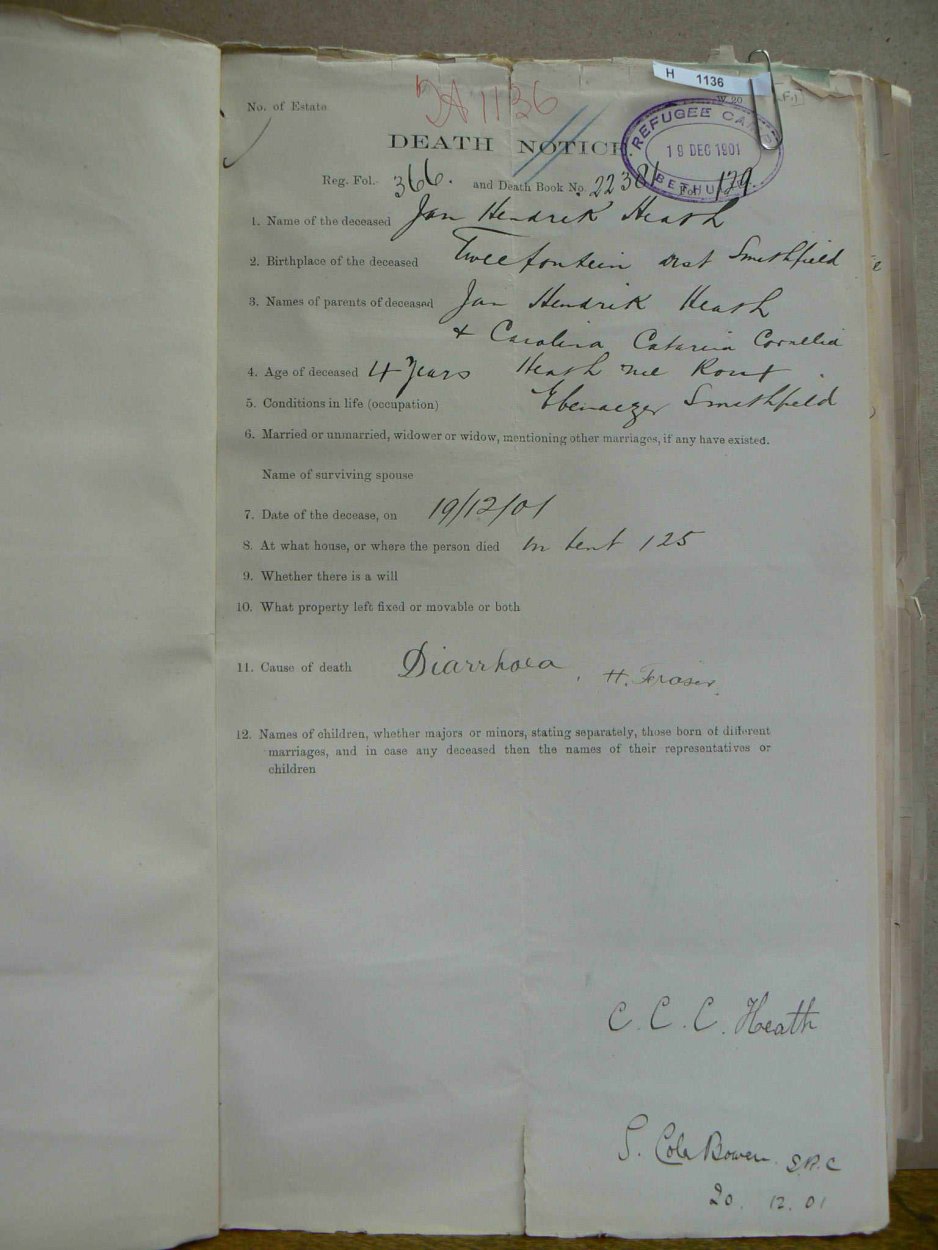 H 1136
No. of Estate
1136
W 20
REFUGEE CAMP
19 DEC 1901
BETHULIE
DEATH NOTICE
Reg. Fol. 366. and Death Book No. Fol. 129.
1. Name of the deceased Jan Hendrik Heath
2. Birthplace of the deceased Tweefontein dist Smithfield
3. Names of parents of deceased Jan Hendrik Heath
+ Carolina Catarina Cornelia
4. Age of deceased 4 Years Heath nee
5. Conditions in life (occupation) Ebenaezer Smithfield
6. Married or unmarried, widower or widow, mentioning other marriages, if any have existed.
Name of surviving spouse
7. Date of the decease, on 19/12/01
8. At what house, or where the person died In tent 125
9. Whether there is a will
10. What property left fixed or movable or both
11. Cause of death Diarrhoea, H. Fraser.
12. Names of children, whether majors or minors, stating separately, those born of different
marriages, and in case any deceased then the names of their representatives or
children
C. C. C. Heath
S. Cole Bowen S.R.C
20. 12. 01